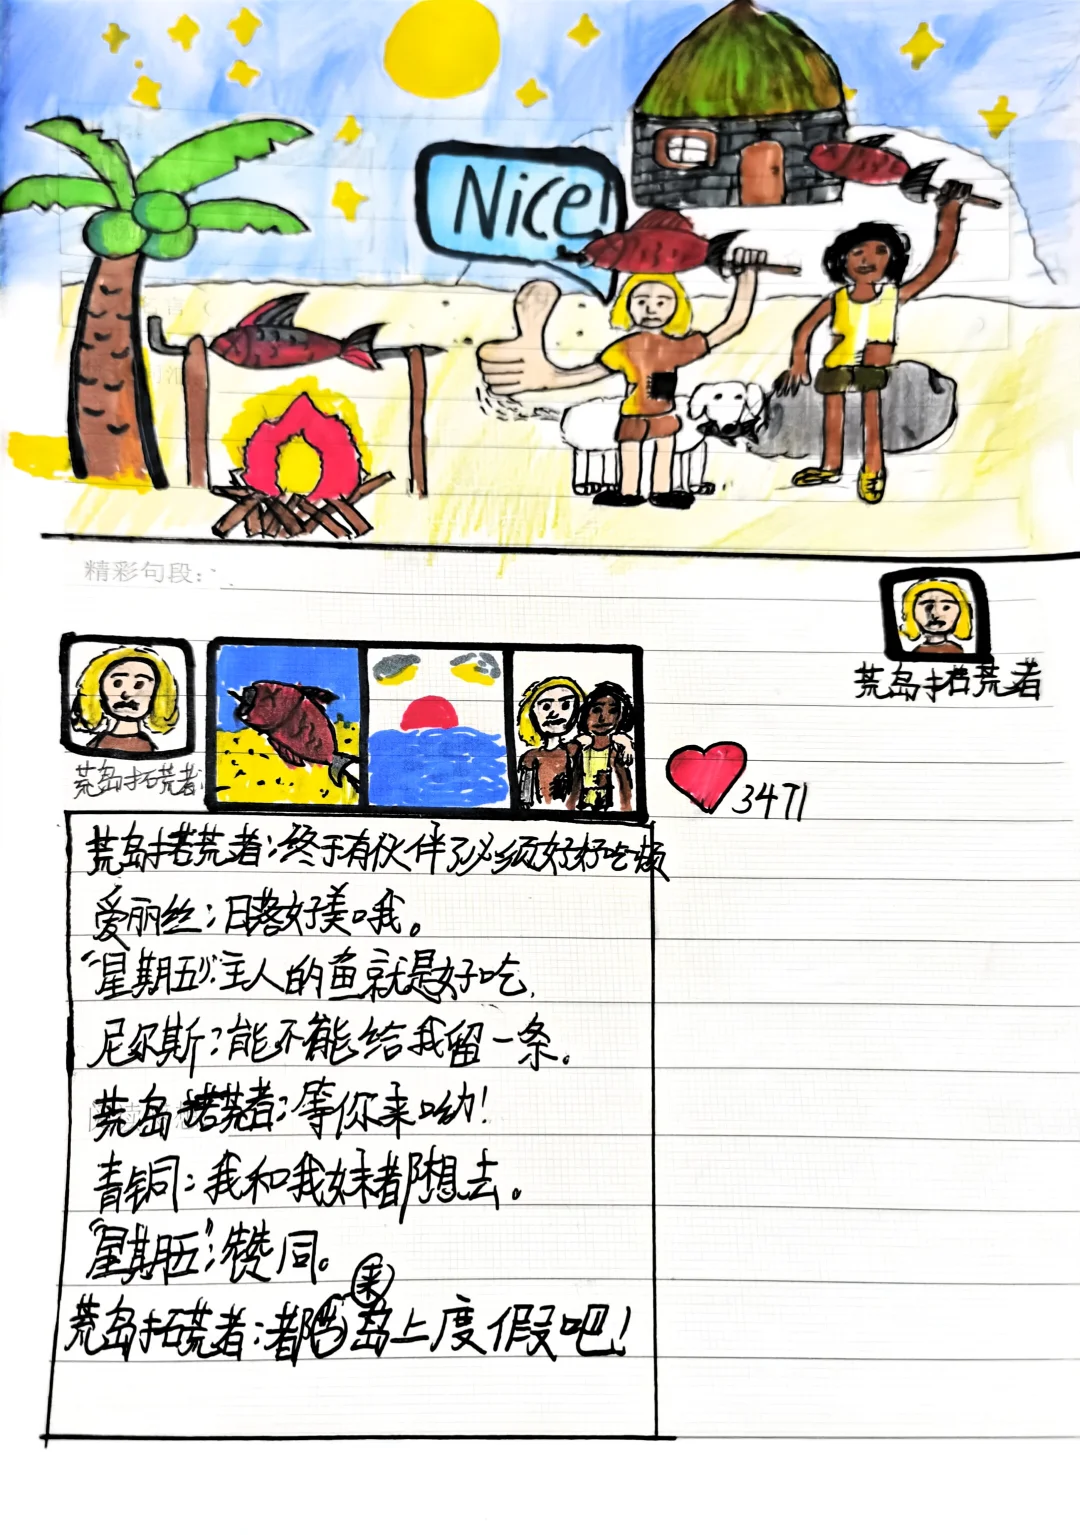 Nice!
精彩句段:
荒岛拓荒者
荒岛拓荒者
3471
荒岛拓荒者:终于有伙伴了必须好好吃顿
爱丽丝:日落好美哦。
“星期五”:主人的鱼就是好吃.
尼尔斯:能不能给我留一条。
荒岛拓荒者:等你来呦!
青铜:我和我妹都想去。
“星期五”:赞同。
荒岛拓荒者:都来岛上度假吧!